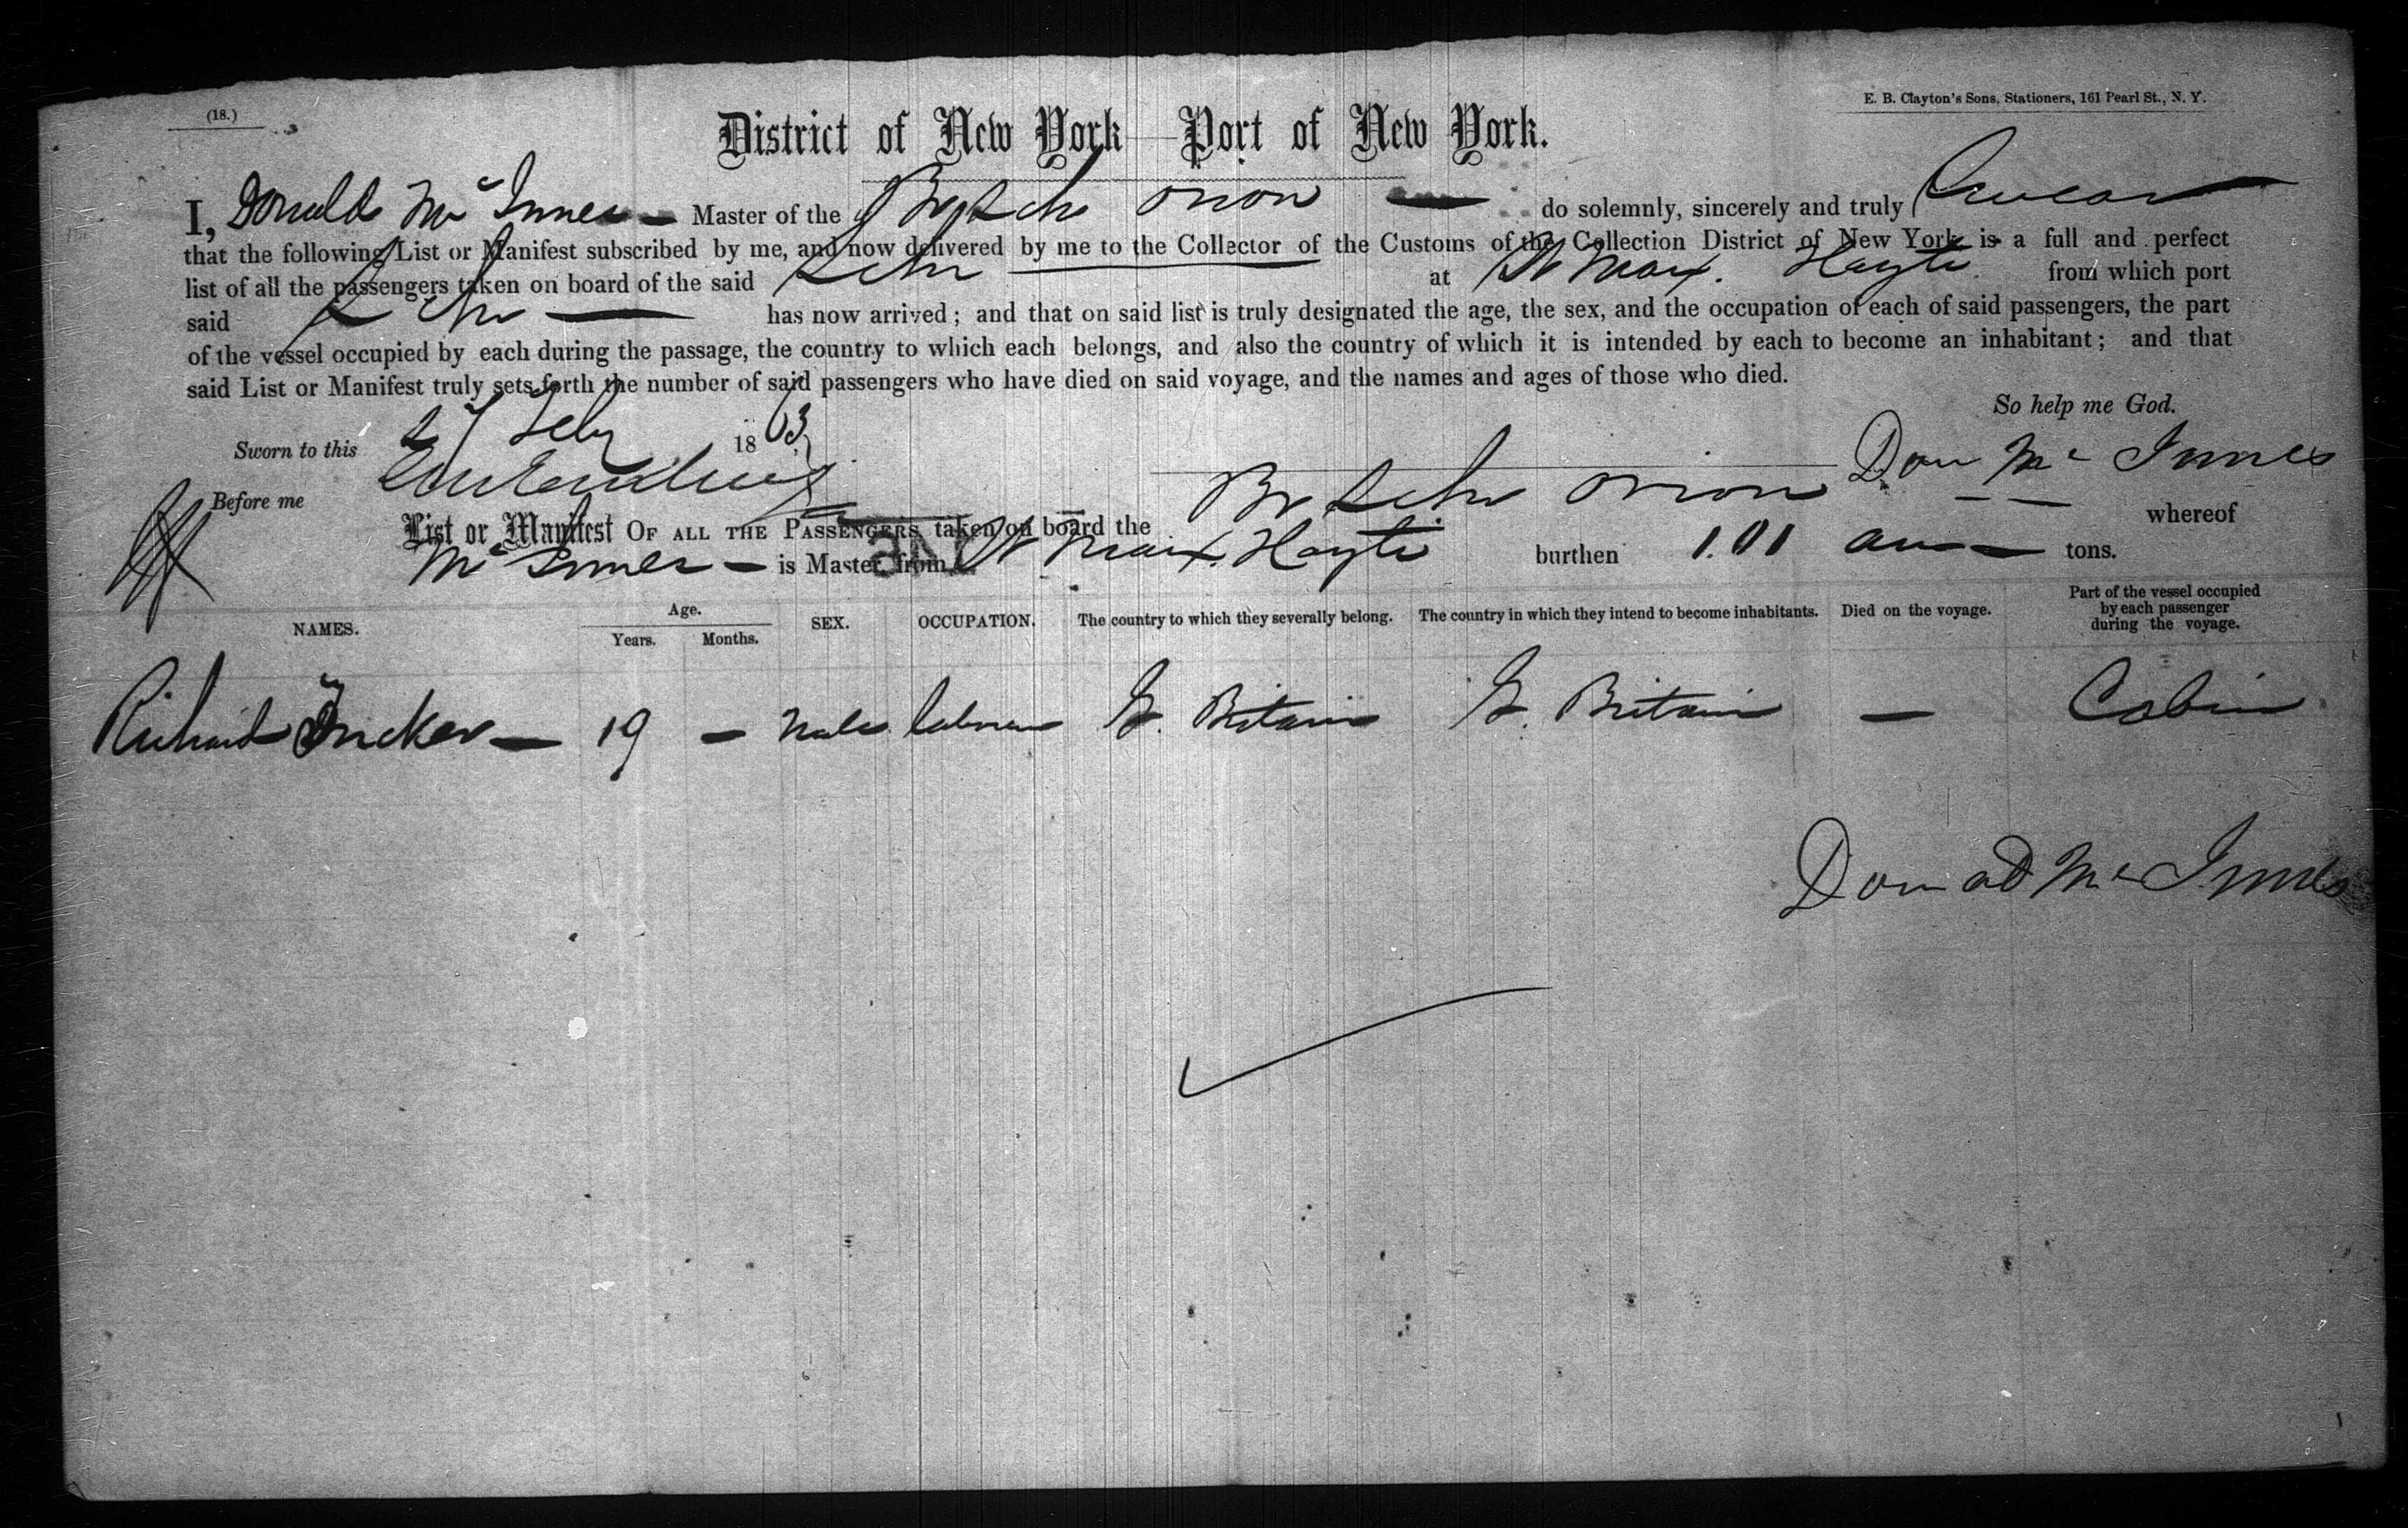 (18.)
E. B. Clayton's Sons, Stationers, 161 Pearl St., N. Y.
District of New York—Port of New York.
I, Donald Mc Innes — Master of the Br Schr Orion — do solemnly, sincerely and truly Swear
that the following List or Manifest subscribed by me, and now delivered by me to the Collector of the Customs of the Collection District of New York is a full and perfect
list of all the passengers taken on board of the said Schr at St Marx. Hayti from which port
said Schr — has now arrived; and that on said list is truly designated the age, the sex, and the occupation of each of said passengers, the part
of the vessel occupied by each during the passage, the country to which each belongs, and also the country of which it is intended by each to become an inhabitant; and that
said List or Manifest truly sets forth the number of said passengers who have died on said voyage, and the names and ages of those who died.
So help me God.
Sworn to this 27 Feby 1863
Don Mc Innes
Before me
List or Manifest OF ALL THE PASSENGERS taken on board the Br Schr Orion whereof
Mc Innes — is Master, from St Marx. Hayti burthen 101 tons.
NAMES. Age. Years. Months. SEX. OCCUPATION. The country to which they severally belong. The country in which they intend to become inhabitants. Died on the voyage. Part of the vessel occupied by each passenger during the voyage.
Richard Tucker — 19 — Male laborer G. Britain G. Britain — Cabin
Donald Mc Innes